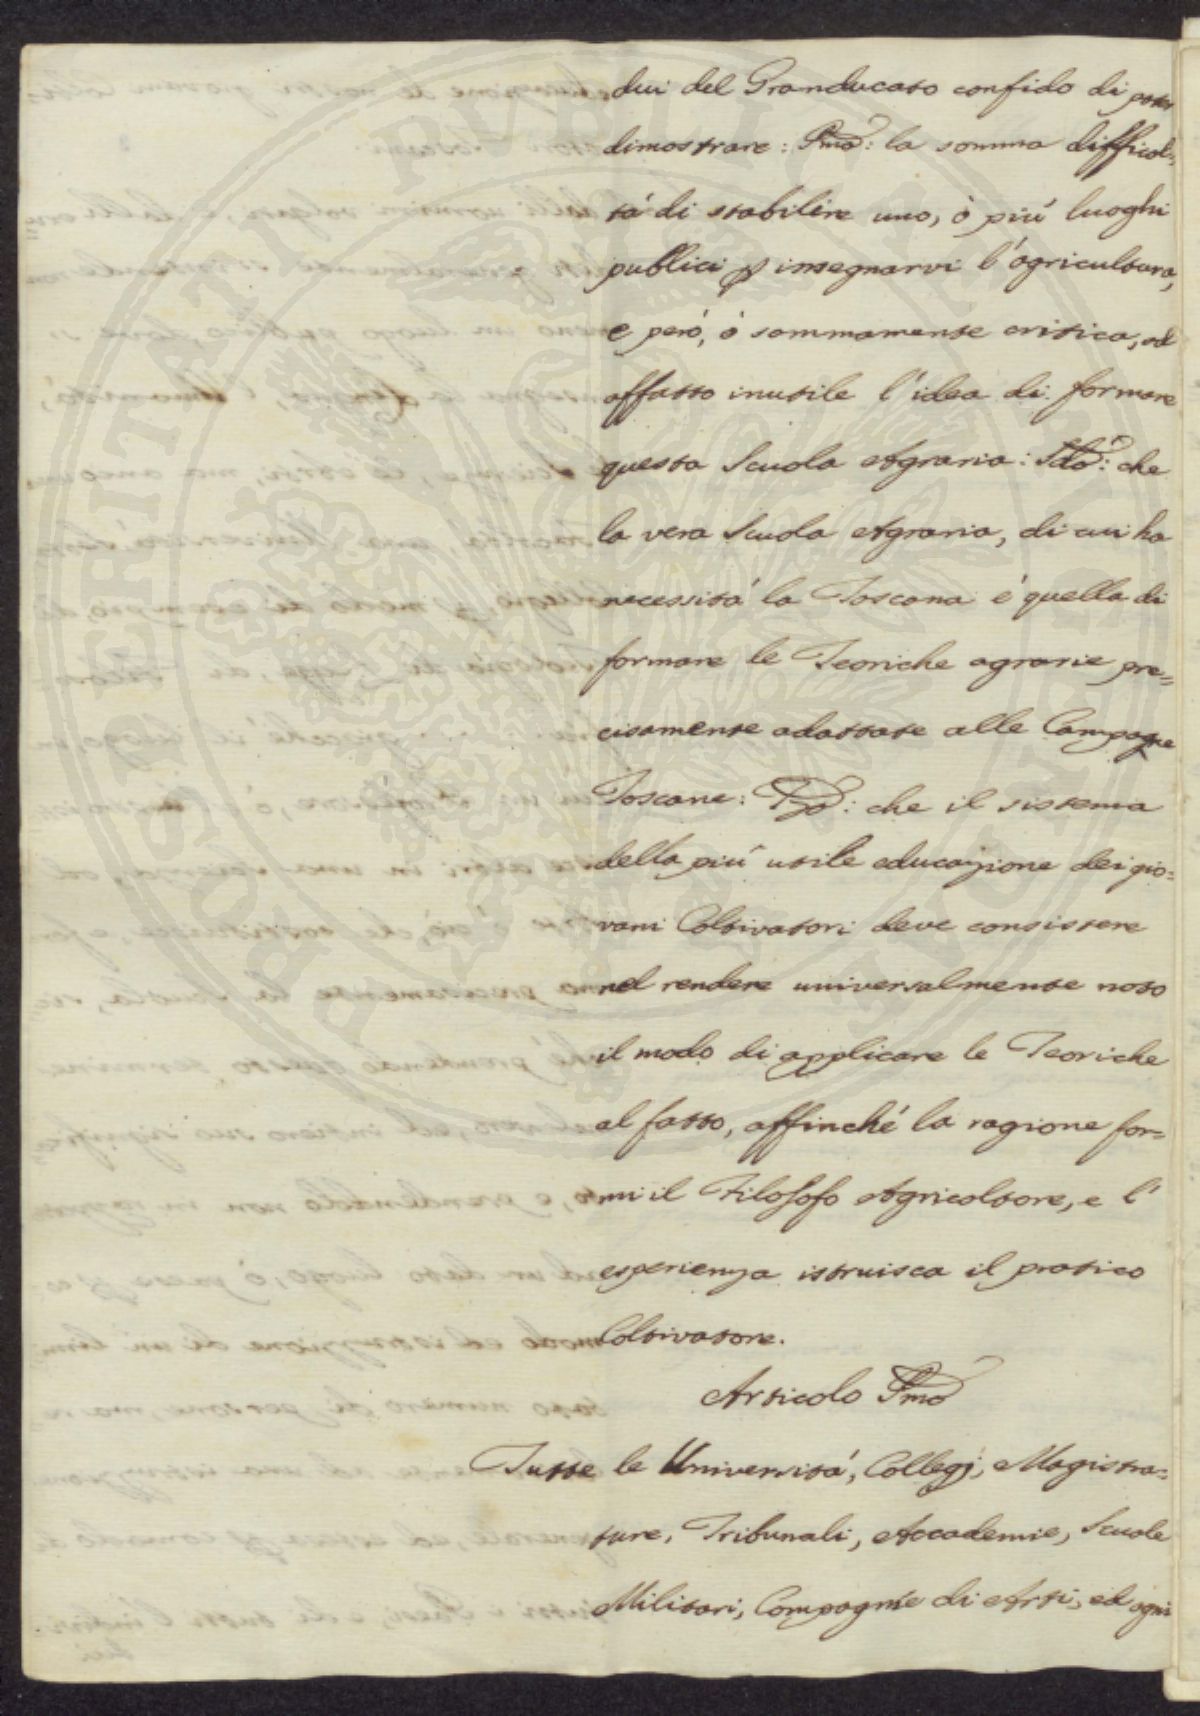 dui del Granducato confido di poter
dimostrare: Pmo: la somma difficol=
tá di stabilire uno, ò più luoghi
publici p insegnarvi l'agricultura,
e però, ò sommamente critica, od
affatto inutile l'idea di formare
questa Scuola Agraria: Sdo: che
la vera Scuola Agraria, di cui ha
necessitá la Toscana é quella di
formare le Teoriche agrarie pre=
cisamente adattate alle Campagne
Toscane: Tzo: che il sistema
della piú utile educazione dei gio=
vani Coltivatori deve consistere
nel rendere universalmente noto
il modo di applicare le Teoriche
al fatto, affinché la ragione for=
mi il Filosofo Agricoltore, e l'
esperienza istruisca il pratico
Coltivatore.
Articolo Pmo
Tutte le Universitá, Collegj, Magistra=
ture, Tribunali, Accademie, Scuole
Militari, Compagnie di Arti, ed ogni
PROSPERITATI PUBLICAE